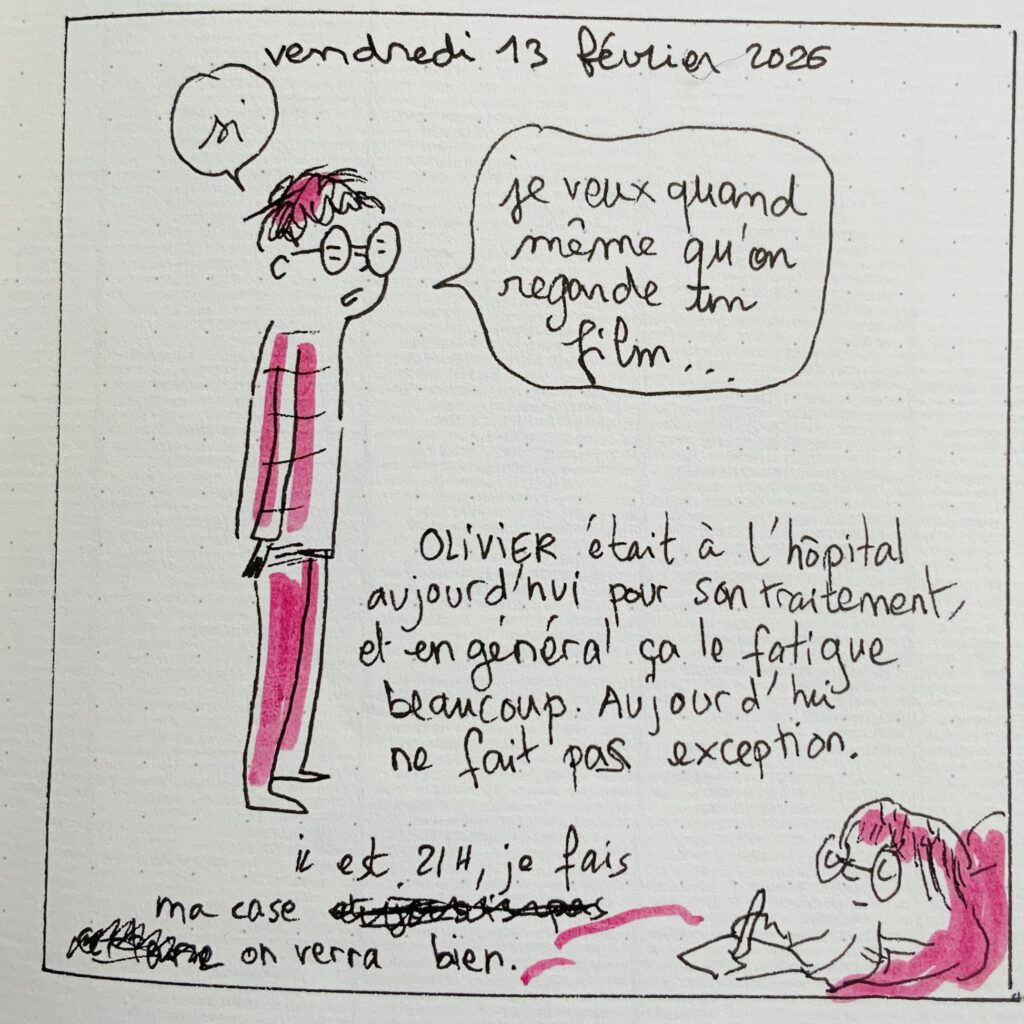 vendredi 13 février 2026
si
je veux quand
même qu'on
regarde ton
film...
OLIVIER était à l'hôpital
aujourd'hui pour son traitement,
et en général ça le fatigue
beaucoup. Aujourd'hui
ne fait pas exception.
il est 21H, je fais
ma case
on verra bien.